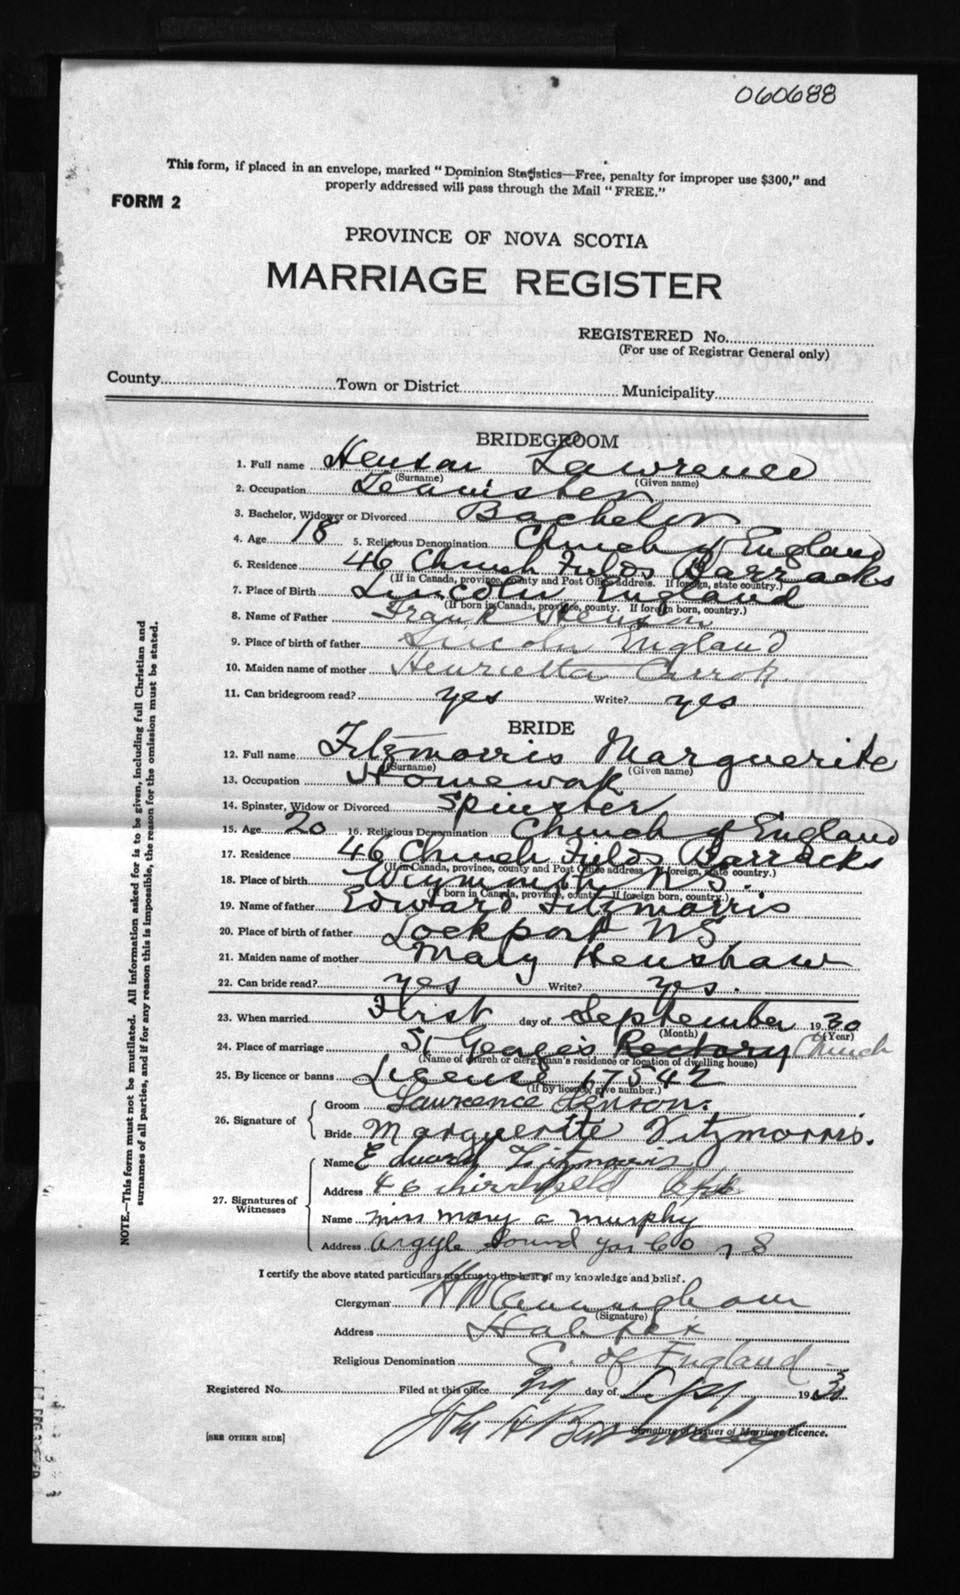 060688
This form, if placed in an envelope, marked "Dominion Statistics—Free, penalty for improper use $300," and
properly addressed will pass through the Mail "FREE."
FORM 2
PROVINCE OF NOVA SCOTIA
MARRIAGE REGISTER
REGISTERED No.
(For use of Registrar General only)
County Town or District Municipality
BRIDEGROOM
1. Full name Henson Lawrence
(Surname) (Given name)
2. Occupation Teamster
3. Bachelor, Widower or Divorced Bachelor
4. Age 18 5. Religious Denomination Church of England
6. Residence 46 Church Fields Barracks
(If in Canada, province, county and Post Office address. If foreign, state country.)
7. Place of Birth Lincoln England
(If born in Canada, province, county. If foreign born, country.)
8. Name of Father Frank Henson
9. Place of birth of father Lincoln England
10. Maiden name of mother Henrietta
11. Can bridegroom read? yes Write? yes
BRIDE
12. Full name Fitzmorris Marguerite
(Surname) (Given name)
13. Occupation Homework
14. Spinster, Widow or Divorced Spinster
15. Age 20 16. Religious Denomination Church of England
17. Residence 46 Church Fields Barracks
(If in Canada, province, county and Post Office address. If foreign, state country.)
18. Place of birth Weymouth N.S.
(If born in Canada, province, county. If foreign born, country.)
19. Name of father Edward Fitzmorris
20. Place of birth of father Lockport N.S.
21. Maiden name of mother Mary Henshaw
22. Can bride read? yes Write? yes.
23. When married First day of September 1930
(Month) (Year)
24. Place of marriage St George's Rectory Church
(Name of church or clergyman's residence or location of dwelling house)
25. By licence or banns License 17542
(If by licence, give number.)
26. Signature of
Groom Lawrence Henson.
Bride Marguerite Fitzmorris.
27. Signatures of
Witnesses
Name Edward Fitzmorris
Address 46
Name miss mary a murphy
Address argyle Sound yar Co n S
I certify the above stated particulars are true to the best of my knowledge and belief.
Clergyman H W Cunningham
(Signature)
Address Halifax
Religious Denomination C. of England
Registered No. Filed at this office day of Sept 1930
John H
Signature of Issuer of Marriage Licence.
[SEE OTHER SIDE]
NOTE.—This form must not be mutilated. All information asked for is to be given, including full Christian and
surnames of all parties, and if for any reason this is impossible, the reason for the omission must be stated.